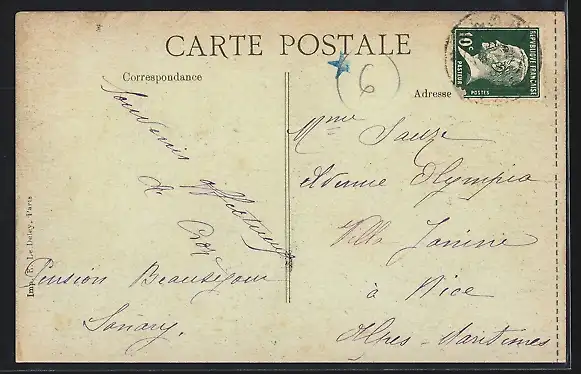 CARTE POSTALE
Correspondance
Adresse
10c
PASTEUR
POSTES
RÉPUBLIQUE FRANÇAISE
6
Souvenir affectueux
de
Pension Beauséjour
Sanary.
Mme Sauze
Avenue Olympia
Villa Janine
à Nice
Alpes-Maritimes
Imp. E. Le Deley, Paris